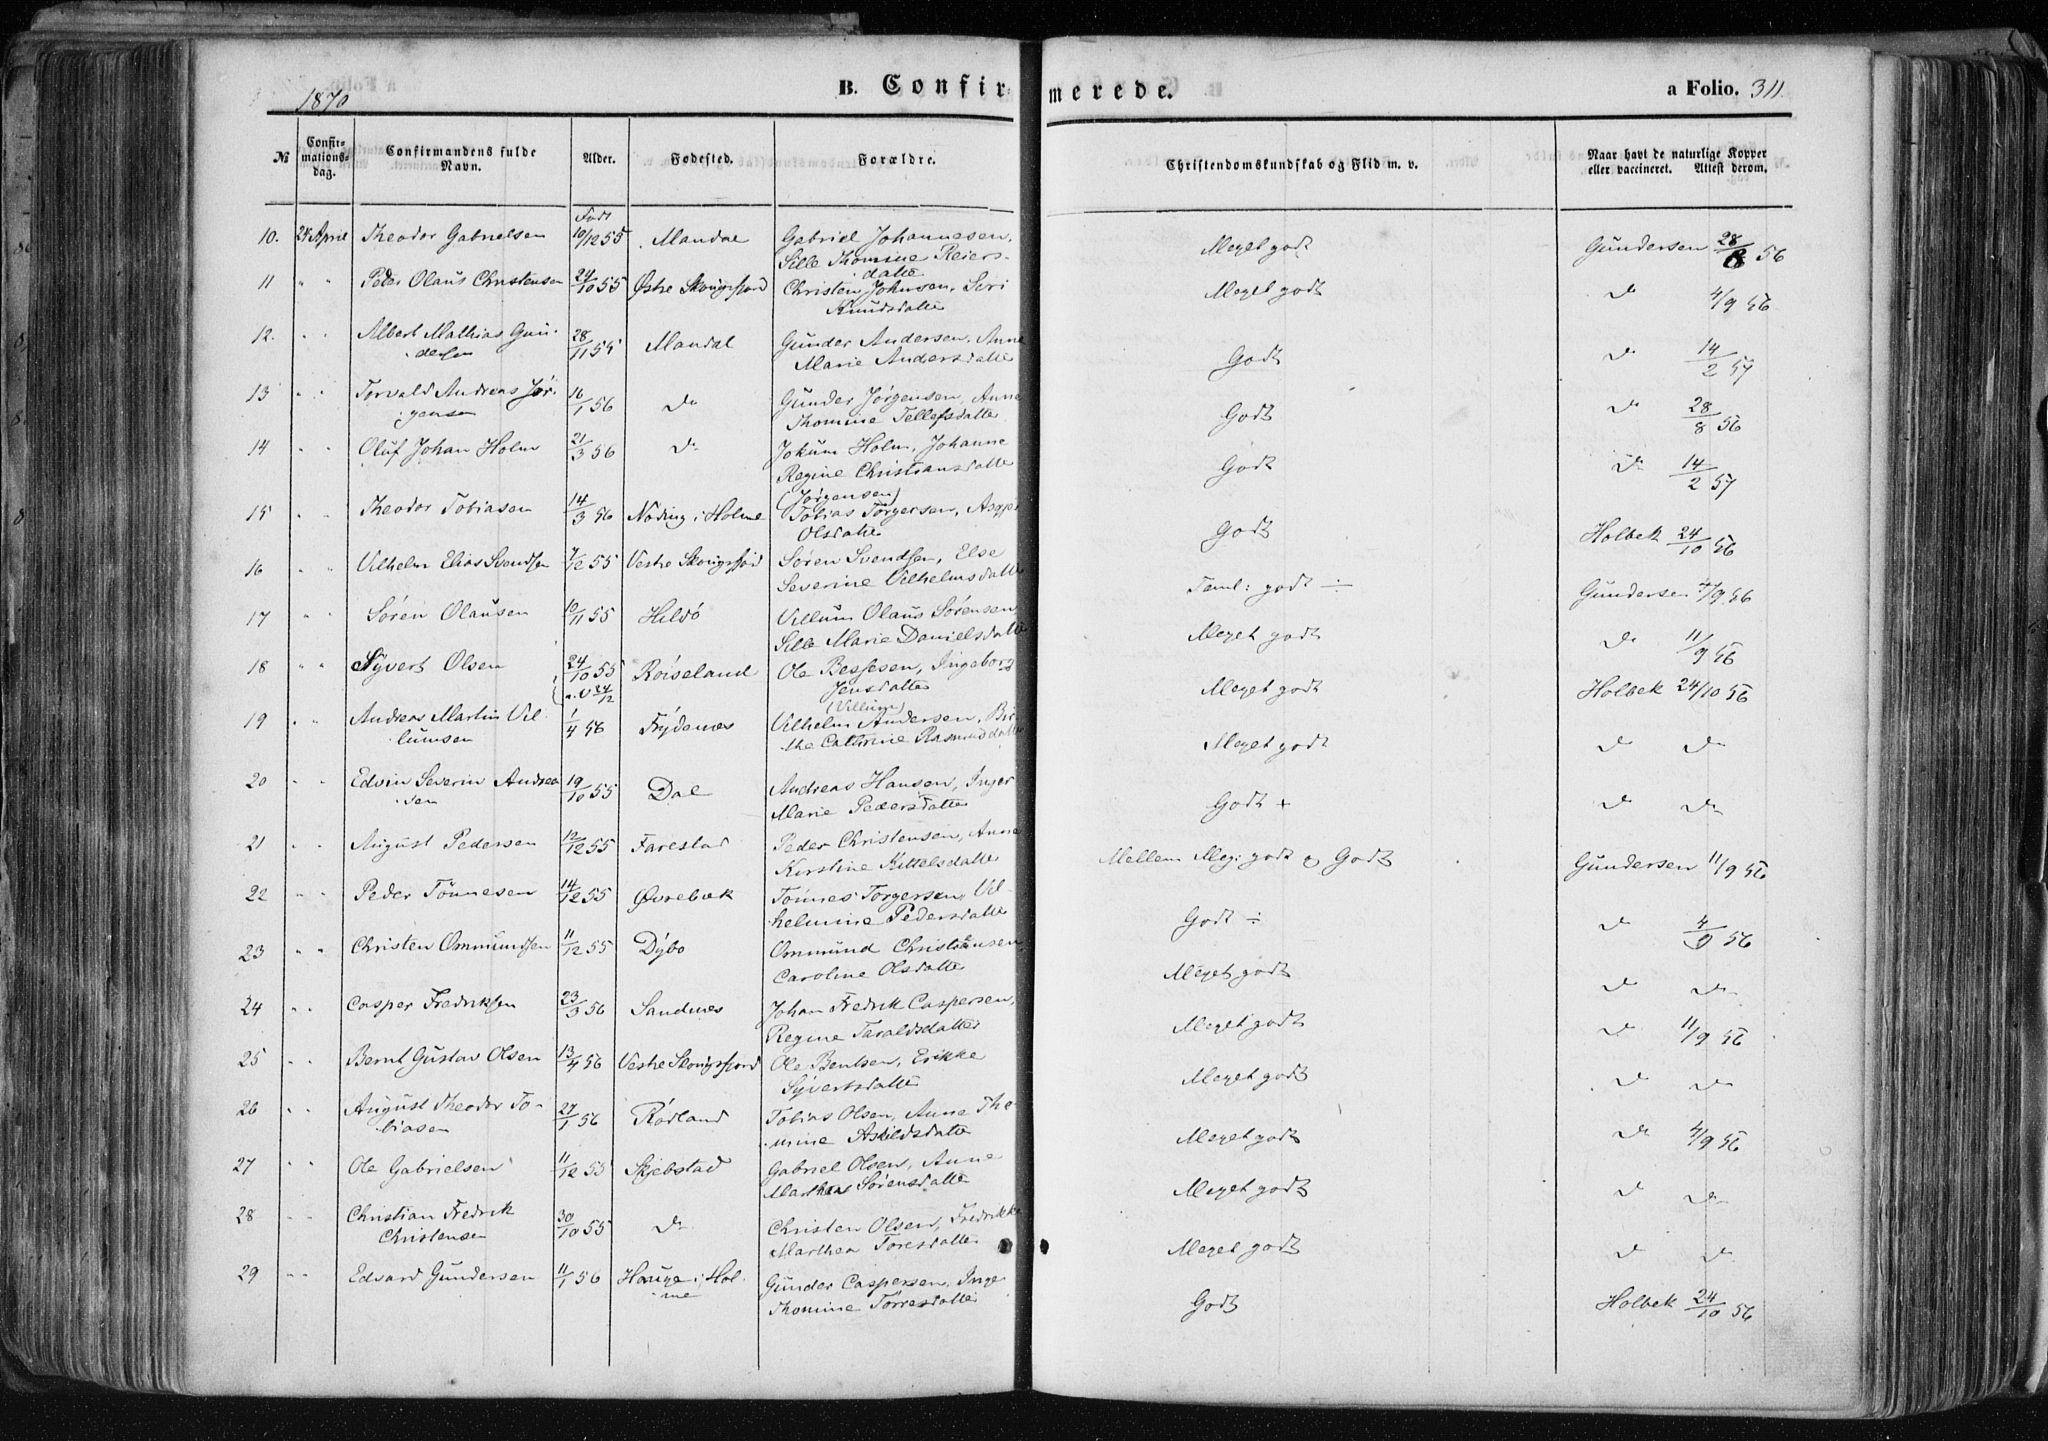 1870 B. Confirmerede. a Folio. 311.
№ Confirmationsdag. Confirmandens fulde Navn. Alder. Fødested. Forældre. Christendomskundskab og Flid m. v. Naar havt de naturlige Kopper eller vaccineret. Attest derom.
Født
10. 24 April Theodor Gabrielsen 10/12 55 Mandal Gabriel Johannesen, Meget godt Gundersen 28/8 56
Sille Thomine Reiers-
datter
11 " " Peder Olaus Christensen 24/10 55 Østre Skougsfjord Christen Johnsen, Siri Meget godt do 4/9 56
Knudsdatter
12. " " Albert Mathias Gun- 28/11 55 Mandal Gunder Andersen, Anne Godt do 14/2 57
dersen Marie Andersdatter
13 " " Torvald Andreas Jør- 16/1 56 do Gunder Jørgensen, Anne Godt do 28/8 56
gensen Thomine Tellefsdatter
14 " " Oluf Johan Holm 21/3 56 do Jokum Holm, Johanne Godt do 14/2 57
Regine Christiansdatter
(Jørgensen)
15 " " Theodor Tobiasen 14/3 56 Nøding i Holme Tobias Törgersen, Godt Holbek 24/10 56
Olsdatter
16 " " Vilhelm Elias Svendsen 7/12 55 Vestre Skougsfjord Søren Svendsen, Else Teml: godt ÷ Gundersen 4/9 56
Severine Vilhelmsdatter
17 " " Søren Olausen 10/11 55 Hildø Villum Olaus Sørensen Meget godt do 11/9 56
Sille Marie Danielsdatter
18 " " Syvert Olsen 24/10 55 Røiseland Ole Bessesen, Ingeborg Meget godt Holbek 24/10 56
Jensdatter
(Villum)
19 " " Andreas Martin Vil- 1/4 56 Frydenes Vilhelm Andersen, Bir- Meget godt do do
lumsen the Cathrine Rasmusdatter
20 " " Edvin Severin Andrea- 19/10 55 Dal Andreas Hansen, Inger Godt + do do
sen Marie Pedersdatter
21 " " August Pedersen 12/12 55 Farestad Peder Christensen, Anne Mellem Meg: godt & Godt Gundersen 11/9 56
Kirstine Kittelsdatter
22 " " Peder Tönnesen 14/12 55 Øvrebæk Tönnes Torgersen, Vil- Godt ÷ do 4/9 56
helmine Pedersdatter
23 " " Christen Ommundsen 11/12 55 Dybo Ommund Christensen Meget godt do do
Caroline Olsdatter
24 " " Casper Fredriksen 23/3 56 Sandnes Johan Fredrik Caspersen, Meget godt do 11/9 56
Regine Taraldsdatter
25 " " Bernt Gustav Olsen 13/4 56 Vestre Skougsfjord Ole Bentsen, Erikke Meget godt do do
Syvertsdatter
26 " " August Theodor To- 27/1 56 Rødland Tobias Olsen, Anne Tho- Meget godt do 4/9 56
biasen mine Askildsdatter
27 " " Ole Gabrielsen 11/12 55 Skjebstad Gabriel Olsen, Anne Meget godt do do
Marthea Sørensdatter
28 " " Christian Fredrik 30/10 55 do Christen Olsen, Fredrikke Meget godt do do
Christensen Marthea Toresdatter
29 " " Edvard Gundersen 11/1 56 Houge i Hol- Gunder Caspersen, Inge Godt Holbek 24/10 56
me Thomine Torresdatter